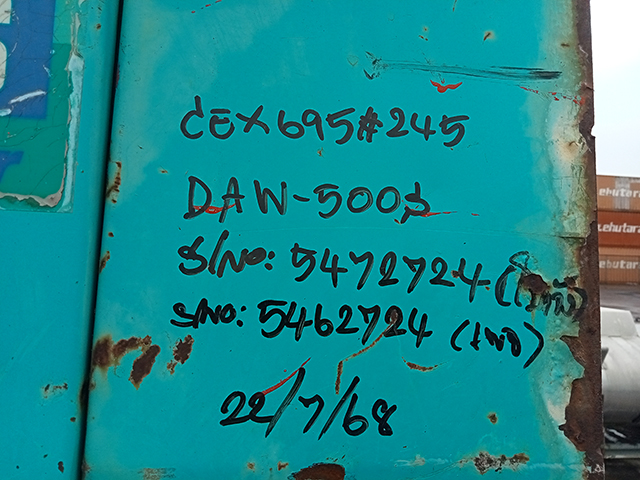 CEX695#245
DAW-500S
S/NO: 5472724
S/NO: 5462724 (เพจ)
22/7/68
ehutara
ehutara